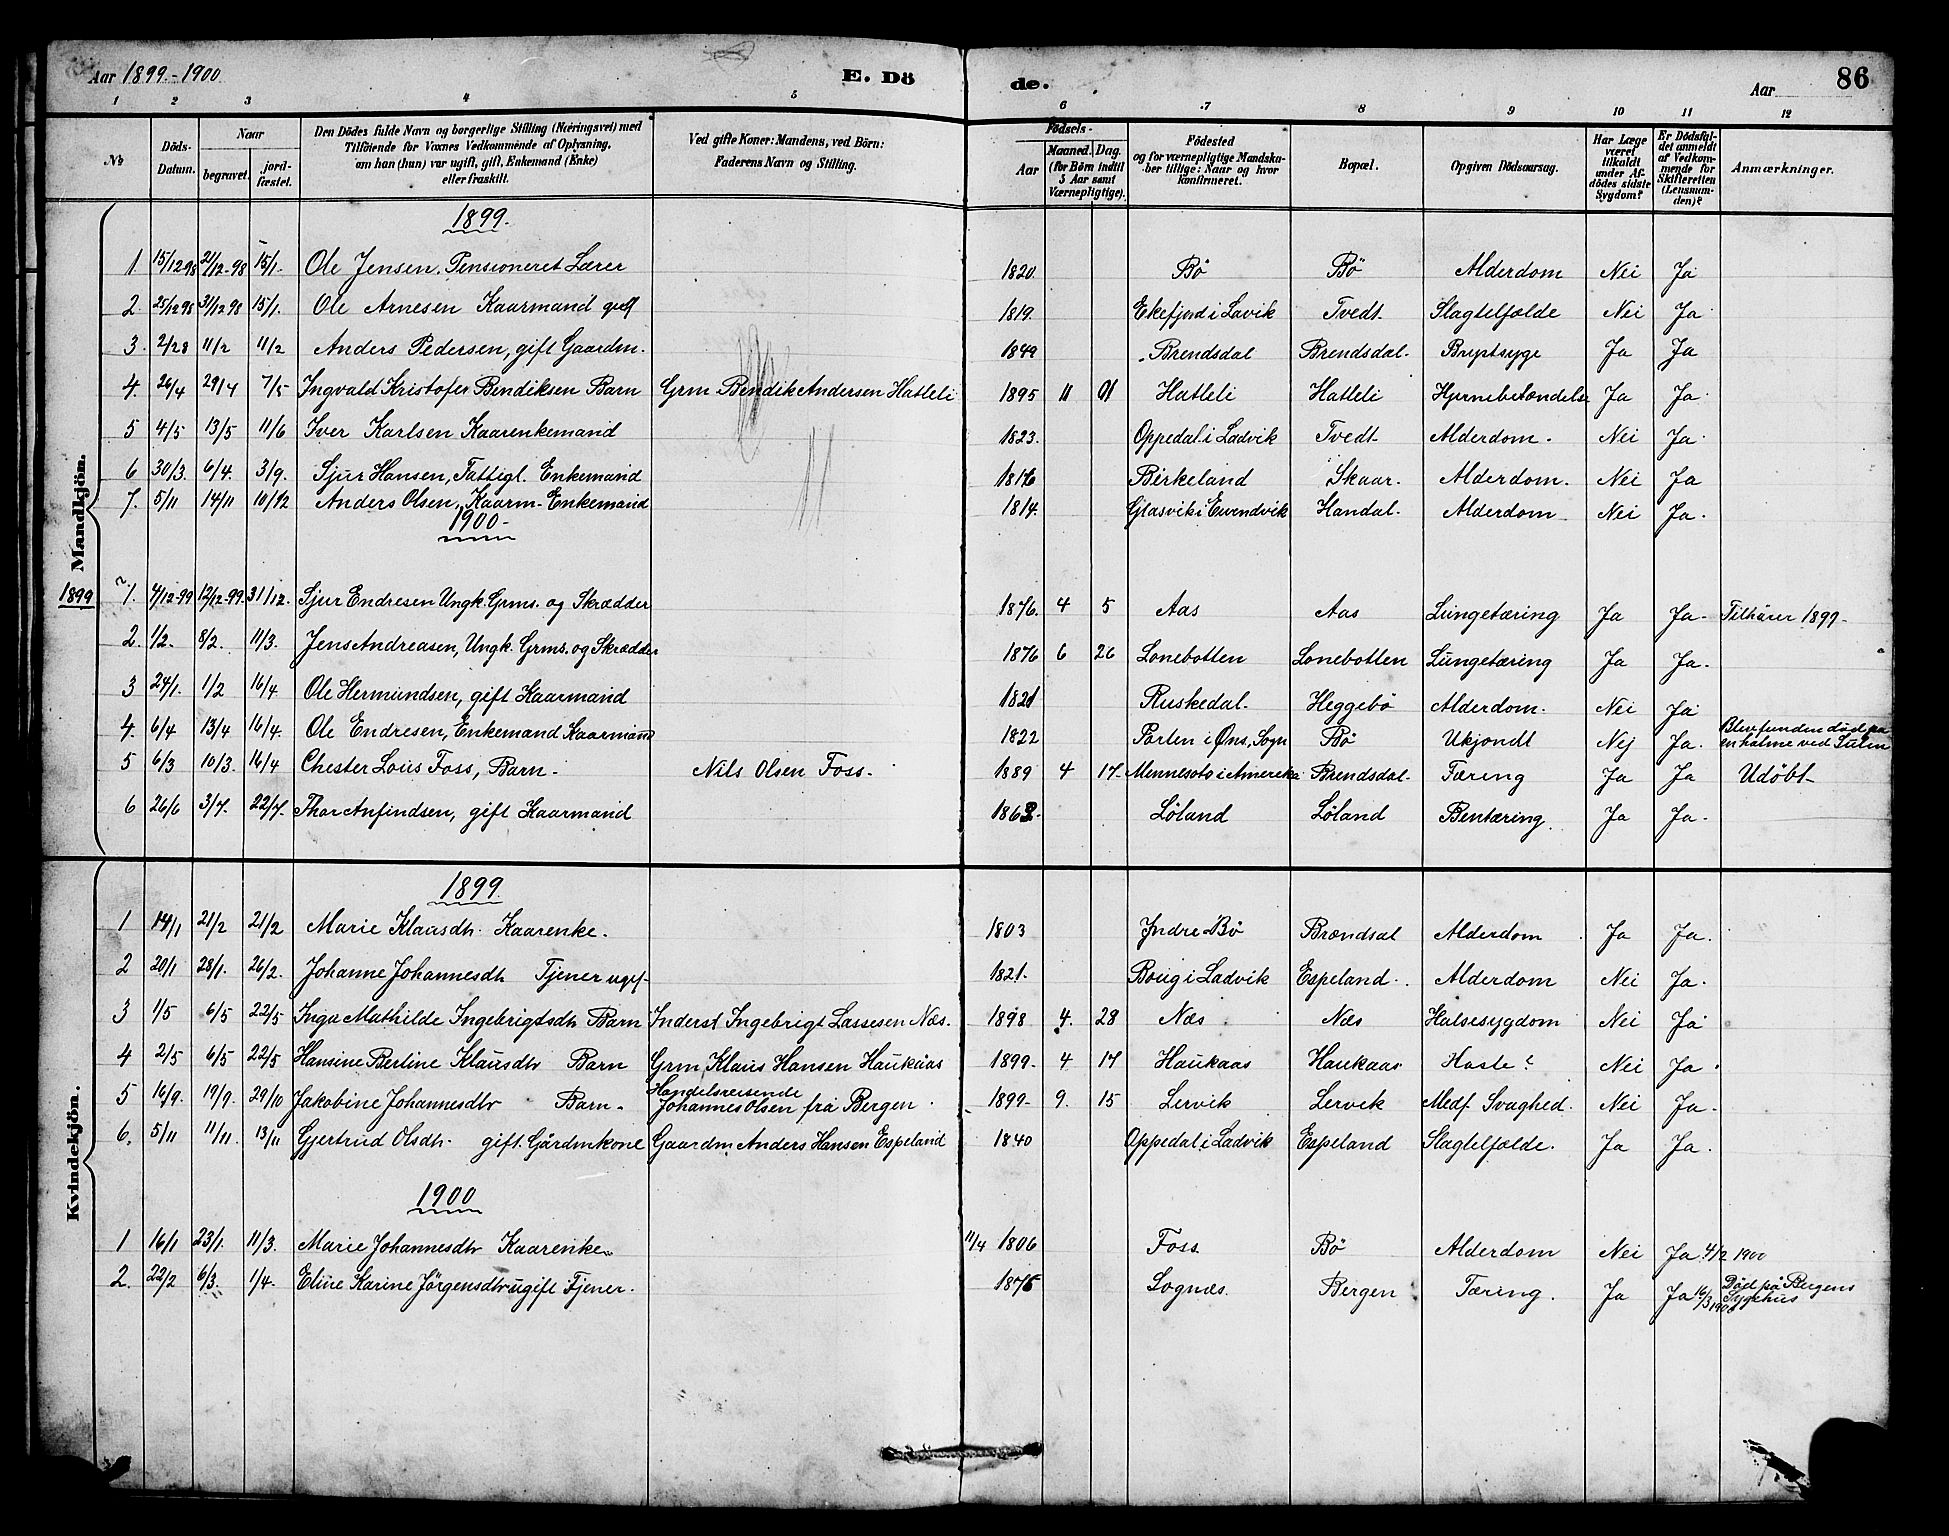 Aar 1899.-1900
E. Dö
de.
Aar
86
1 2 3 4 5 6 7 8 9 10 11 12
No
Döds-Datum.
Naar
begravet.
jord-fæstet.
Den Dödes fulde Navn og borgerlige Stilling (Næringsvei) med
Tilföiende for Voxnes Vedkommende af Oplysning,
om han (hun) var ugift, gift, Enkemand (Enke)
eller fraskilt.
Ved gifte Koner: Mandens, ved Börn:
Faderens Navn og Stilling.
Födsels-
Aar
Maaned. Dag.
(for Börn indtil
5 Aar samt
Værnepligtige).
Födested
og for værnepligtige Mandska-
ber tillige: Naar og hvor
konfirmeret.
Bopæl.
Opgiven Dödsaarsag.
Har Læge
været
tilkaldt
under Af-
dödes sidste
Sygdom?
Er Dödsfal-
det anmeldt
af Vedkom-
mende for
Skifteretten
(Lensman-
den)?
Anmærkninger.
Mandkjön.
1899.
1 15/12 98 21/12-98 15/1. Ole Jensen. Pensioneret Lærer 1820. Bö Bö Alderdom Nei Ja
2 25/12 98 31/12 98 15/1. Ole Arnesen Kaarmand 1819. Ekefjord i Lavik Tvedt. Slagtilfælde Nei Ja
3. 2/28 11/2 11/2 Anders Pedersen, gift Gaardm. 1849 Brendsdal Brendsdal. Brystsyge Ja Ja
4. 26/4 29/4 7/5 Ingvald Kristofer Bendiksen Barn Grm Bendik Andersen Hatleli 1895 11 Hatleli Hatleli Hjernebetændelse Ja Ja
5 4/5 13/5 11/6 Iver Karlsen Kaarenkemand 1823. Oppedal i Ladvik Tvedt Alderdom. Nei Ja
6 30/3 6/4. 3/9. Sjur Hansen, Fattigl. Enkemand 1816 Birkeland Skaar. Alderdom. Nei Ja
7. 5/11 14/11 10/12 Anders Olsen, Kaarm- Enkemand 1814. Glasvik i Evendvik Handal. Alderdom Nei Ja.
1900-
1899 1. 4/12-99 12/12-99. 31/12. Sjur Endresen Ungk. Grms. og Skrædder 1876. 4 5 Aas Aas Lungetæring Ja Ja- Tilhører 1899-
2. 1/2. 8/2. 11/3. Jens Andreasen, Ungk. Grms. og Skrædder 1876 6 26 Lonebotten Lonebotten Lungetæring Ja Ja.
3 24/1. 1/2 16/4 Ole Hermundsen, gift Kaarmand 1821 Ruskedal. Heggebö Alderdom. Nei Ja
4. 6/4 13/4 16/4. Ole Endresen, Enkemand Kaarmand 1822 Parten i Øns, Sogn Bö Ukjendt Nej Ja. Blev funden död paa
en holme ved Sulen
5 6/3 10/3. 16/4 Chester Lous Foss, Barn. Nils Olsen Foss. 1889 4 17. Mennesoto i Amerika Brendsdal. Tæring Ja Ja Udöbt
6 26/6 3/7. 22/7. Thor Anfindsen, gift Kaarmand Löland Löland Bentæring. Ja Ja.
Kvindekjön.
1899.
1 14/1 21/2 21/2 Marie Klausdtr. Kaarenke. 1803 Indre Bö Brændsal Alderdom Ja Ja.
2 20/1 28/1. 26/2. Johanne Johannesdtr Tjener ugift 1821. Boug i Ladvik Espeland. Alderdom Nei Ja.
3 1/5 6/5 22/5 Inga Mathilde Ingebrigtsdtr Barn Inderst Ingebrigt Lassesen Næs. 1898 4. 28 Næs Næs Halsesygdom Nei Ja
4 2/5 6/5 22/5 Hansine Berline Klausdtr Barn Grm Klaus Hansen Haukaas 1899. 4 17 Haukaas Haukaas Hoste? Nei Ja.
5 16/9. 19/9. 29/10 Jakobine Johannesdtr Barn. Handelsreisende
Johannes Olsen fra Bergen 1899- 9. 15 Lervik Lervik Medf. Svaghed. Nei Ja.
6. 5/11 11/11. 13/11 Gjertrud Olsdtr. gift. Gårdmkone Gaardm Anders Hansen Espeland 1840 Oppedal i Ladvik Espeland Slagtilfælde. Ja Ja.
1900
1 16/1 23/1. 11/3. Marie Johannesdtr Kaarenke 11/4 1806 Foss Bö Alderdom Nei Ja 4/2 1900
2. 22/2 6/3. 1/4. Eline Karine Jörgensdtr ugift Tjener. 1875 Sognæs. Bergen Tæring. Ja Ja 16/3 1900 Död på Bergens
Sygehus